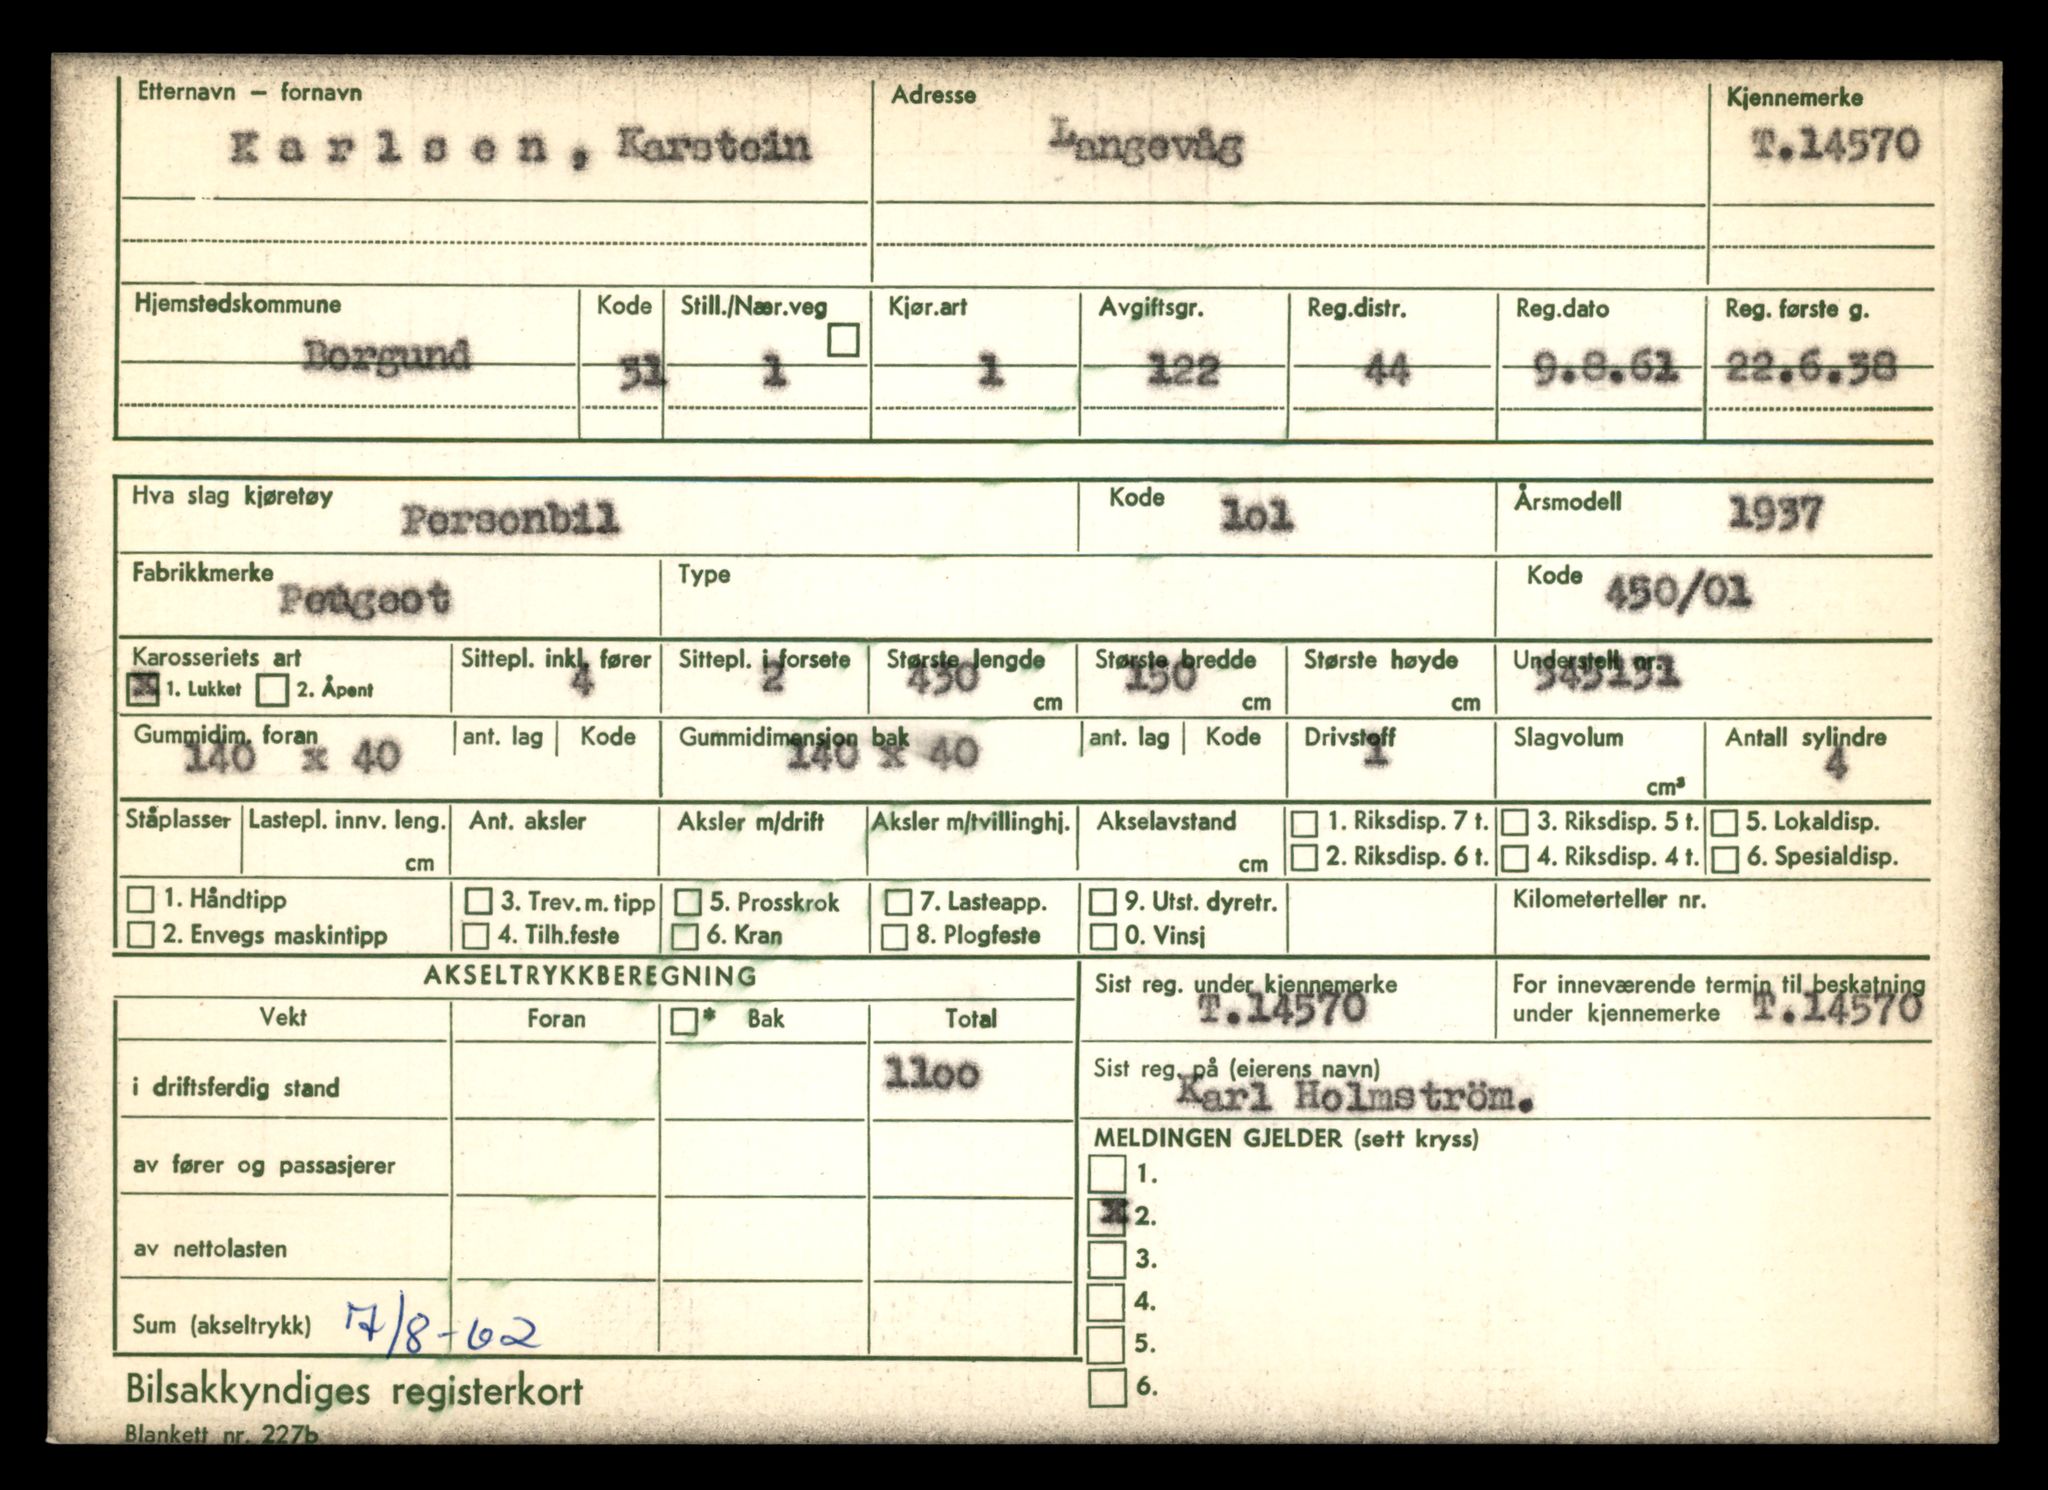 Etternavn – fornavn Adresse Kjennemerke
Karlsen, Karstein Langevåg T.14570
Hjemstedskommune Kode Still./Nær.veg Kjør.art Avgiftsgr. Reg.distr. Reg.dato Reg. første g.
Borgund 31 1 1 122 44 9.8.61 22.6.38
Hva slag kjøretøy Personbil Kode lol Årsmodell 1937
Fabrikkmerke Peugeot Type Kode 450/01
Karosseriets art Sittepl. inkl. fører Sittepl. i forsete Største lengde Største bredde Største høyde Understell nr.
x 1. Lukket 2. Åpent 4 2 430 cm 150 cm cm
Gummidim. foran ant. lag Kode Gummidimensjon bak ant. lag Kode Drivstoff Slagvolum Antall sylindre
140 x 40 140 x 40 1 cm³ 4
Ståplasser Lastepl. innv. leng. Ant. aksler Aksler m/drift Aksler m/tvillinghj. Akselavstand 1. Riksdisp. 7 t. 3. Riksdisp. 5 t. 5. Lokaldisp.
cm cm 2. Riksdisp. 6 t. 4. Riksdisp. 4 t. 6. Spesialdisp.
1. Håndtipp 3. Trev. m. tipp 5. Prosskrok 7. Lasteapp. 9. Utst. dyretr. Kilometerteller nr.
2. Envegs maskintipp 4. Tilh.feste 6. Kran 8. Plogfeste 0. Vinsj
AKSELTRYKKBEREGNING Sist reg. under kjennemerke For inneværende termin til beskatning
Vekt Foran * Bak Total T.14570 under kjennemerke T.14570
i driftsferdig stand 1loo
Sist reg. på (eierens navn)
Karl Holmström.
MELDINGEN GJELDER (sett kryss)
av fører og passasjerer 1.
x 2.
av nettolasten 3.
4.
Sum (akseltrykk) 7/8-62 5.
Bilsakkyndiges registerkort 6.
Blankett nr. 227b